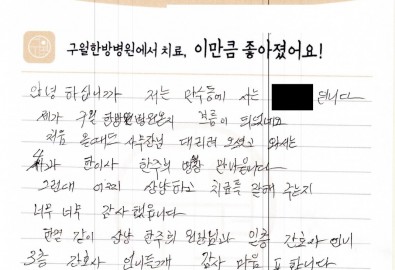 구월한방병원에서 치료, 이만큼 좋아졌어요!
안녕 하십니까 저는 만수동에 사는 입니다
제가 구월 한방병원온지 보름이 되었네요
처음 올때는 사무장님 대리러 오셨고 와서는
한의사 한주희 만나습니다
그런대 어찌 상냥하고 치료를 잘해 주는지
너무 너무 감사 했읍니다
한결 같이 상냥 한주희 원장님과 일층 간호사 언니
3층 간호사 언니들에게 감사 마음 표 합니다